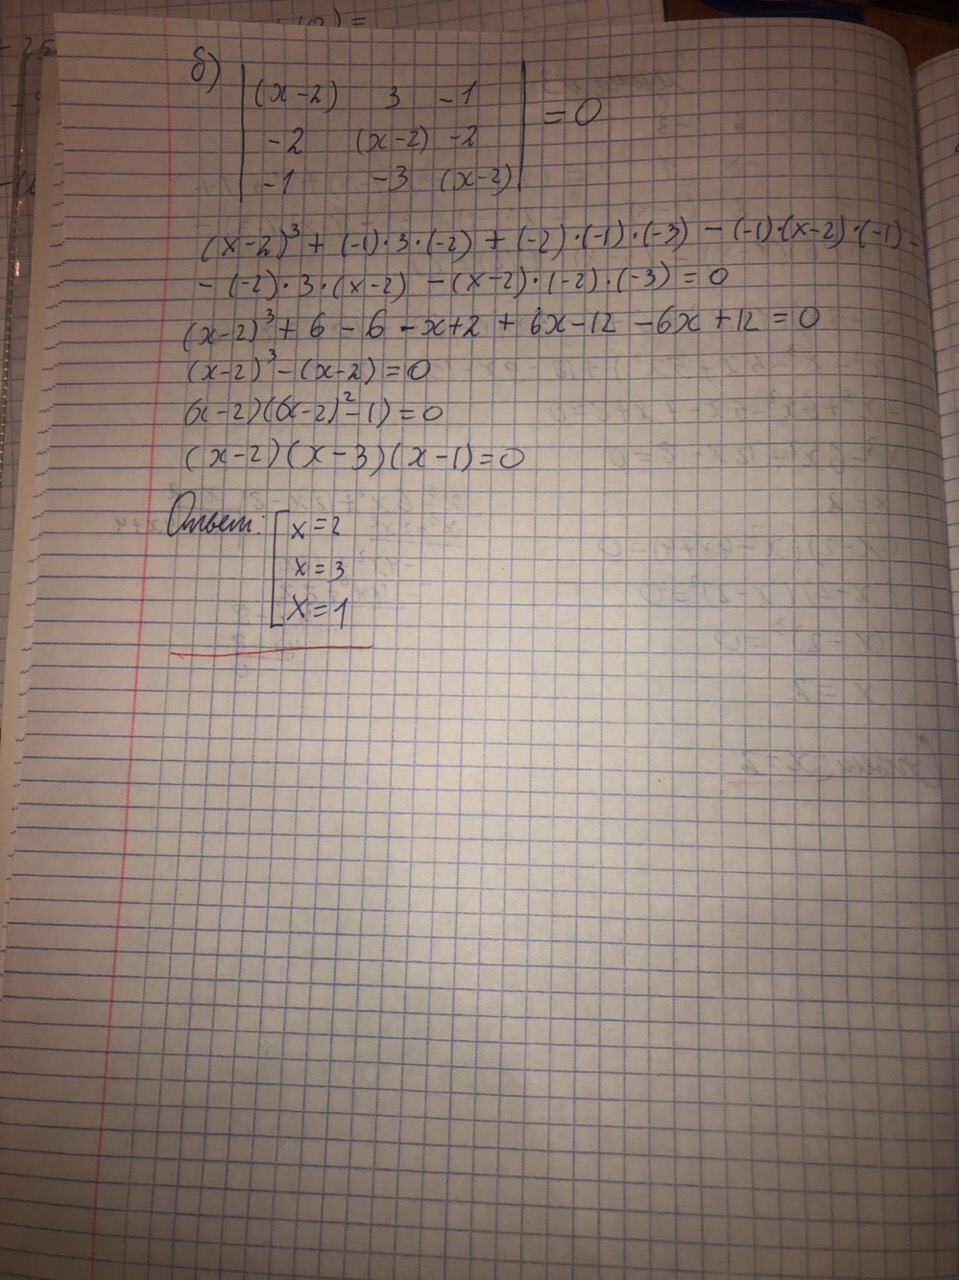 б)
(x-2) 3 -1
-2 (x-2) -2 = 0
-1 -3 (x-2)
(x-2)³ + (-1)·3·(-2) + (-2)·(-1)·(-3) - (-1)·(x-2)·(-1) -
- (-2)·3·(x-2) - (x-2)·(-2)·(-3) = 0
(x-2)³ + 6 - 6 - x+2 + 6x-12 -6x +12 = 0
(x-2)³ - (x-2) = 0
(x-2)((x-2)²-1) = 0
(x-2)(x-3)(x-1)=0
Ответ: [x=2
x=3
x=1